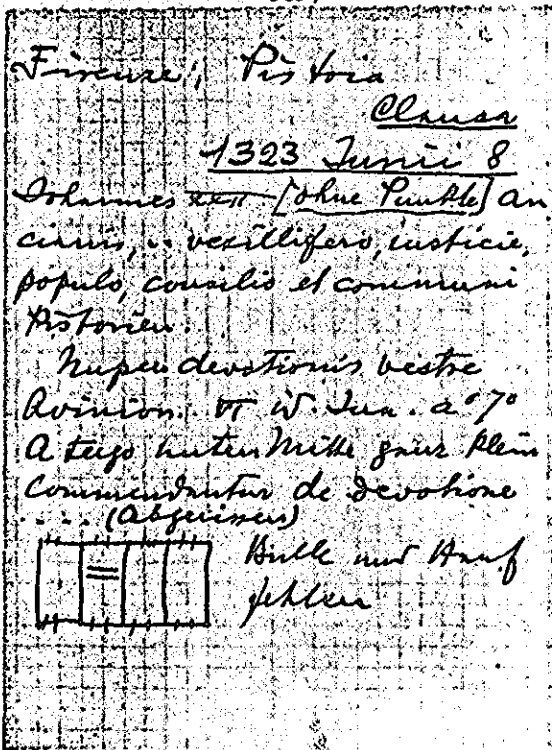 Firenze, Pistoia
Clausa
1323 Junii 8
Johannes XXII [ohne Punkte] an
cianis, .. vexillifero, iusticie,
populo, consilio et communi
Pistorien.
Nuper devotionis vestre
Avinion. VI id. Jun. a° 7°
A tergo unten Mitte ganz klein
Commendantur de devotione
.... (abgerissen)
Bulle und Hanf
fehlen